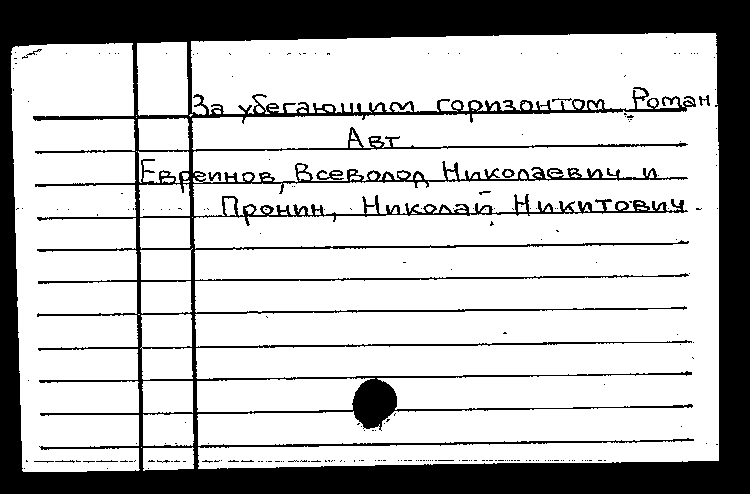 За убегающим горизонтом. Роман.
Авт.
Евреинов, Всеволод Николаевич и
Пронин, Николай Никитович.